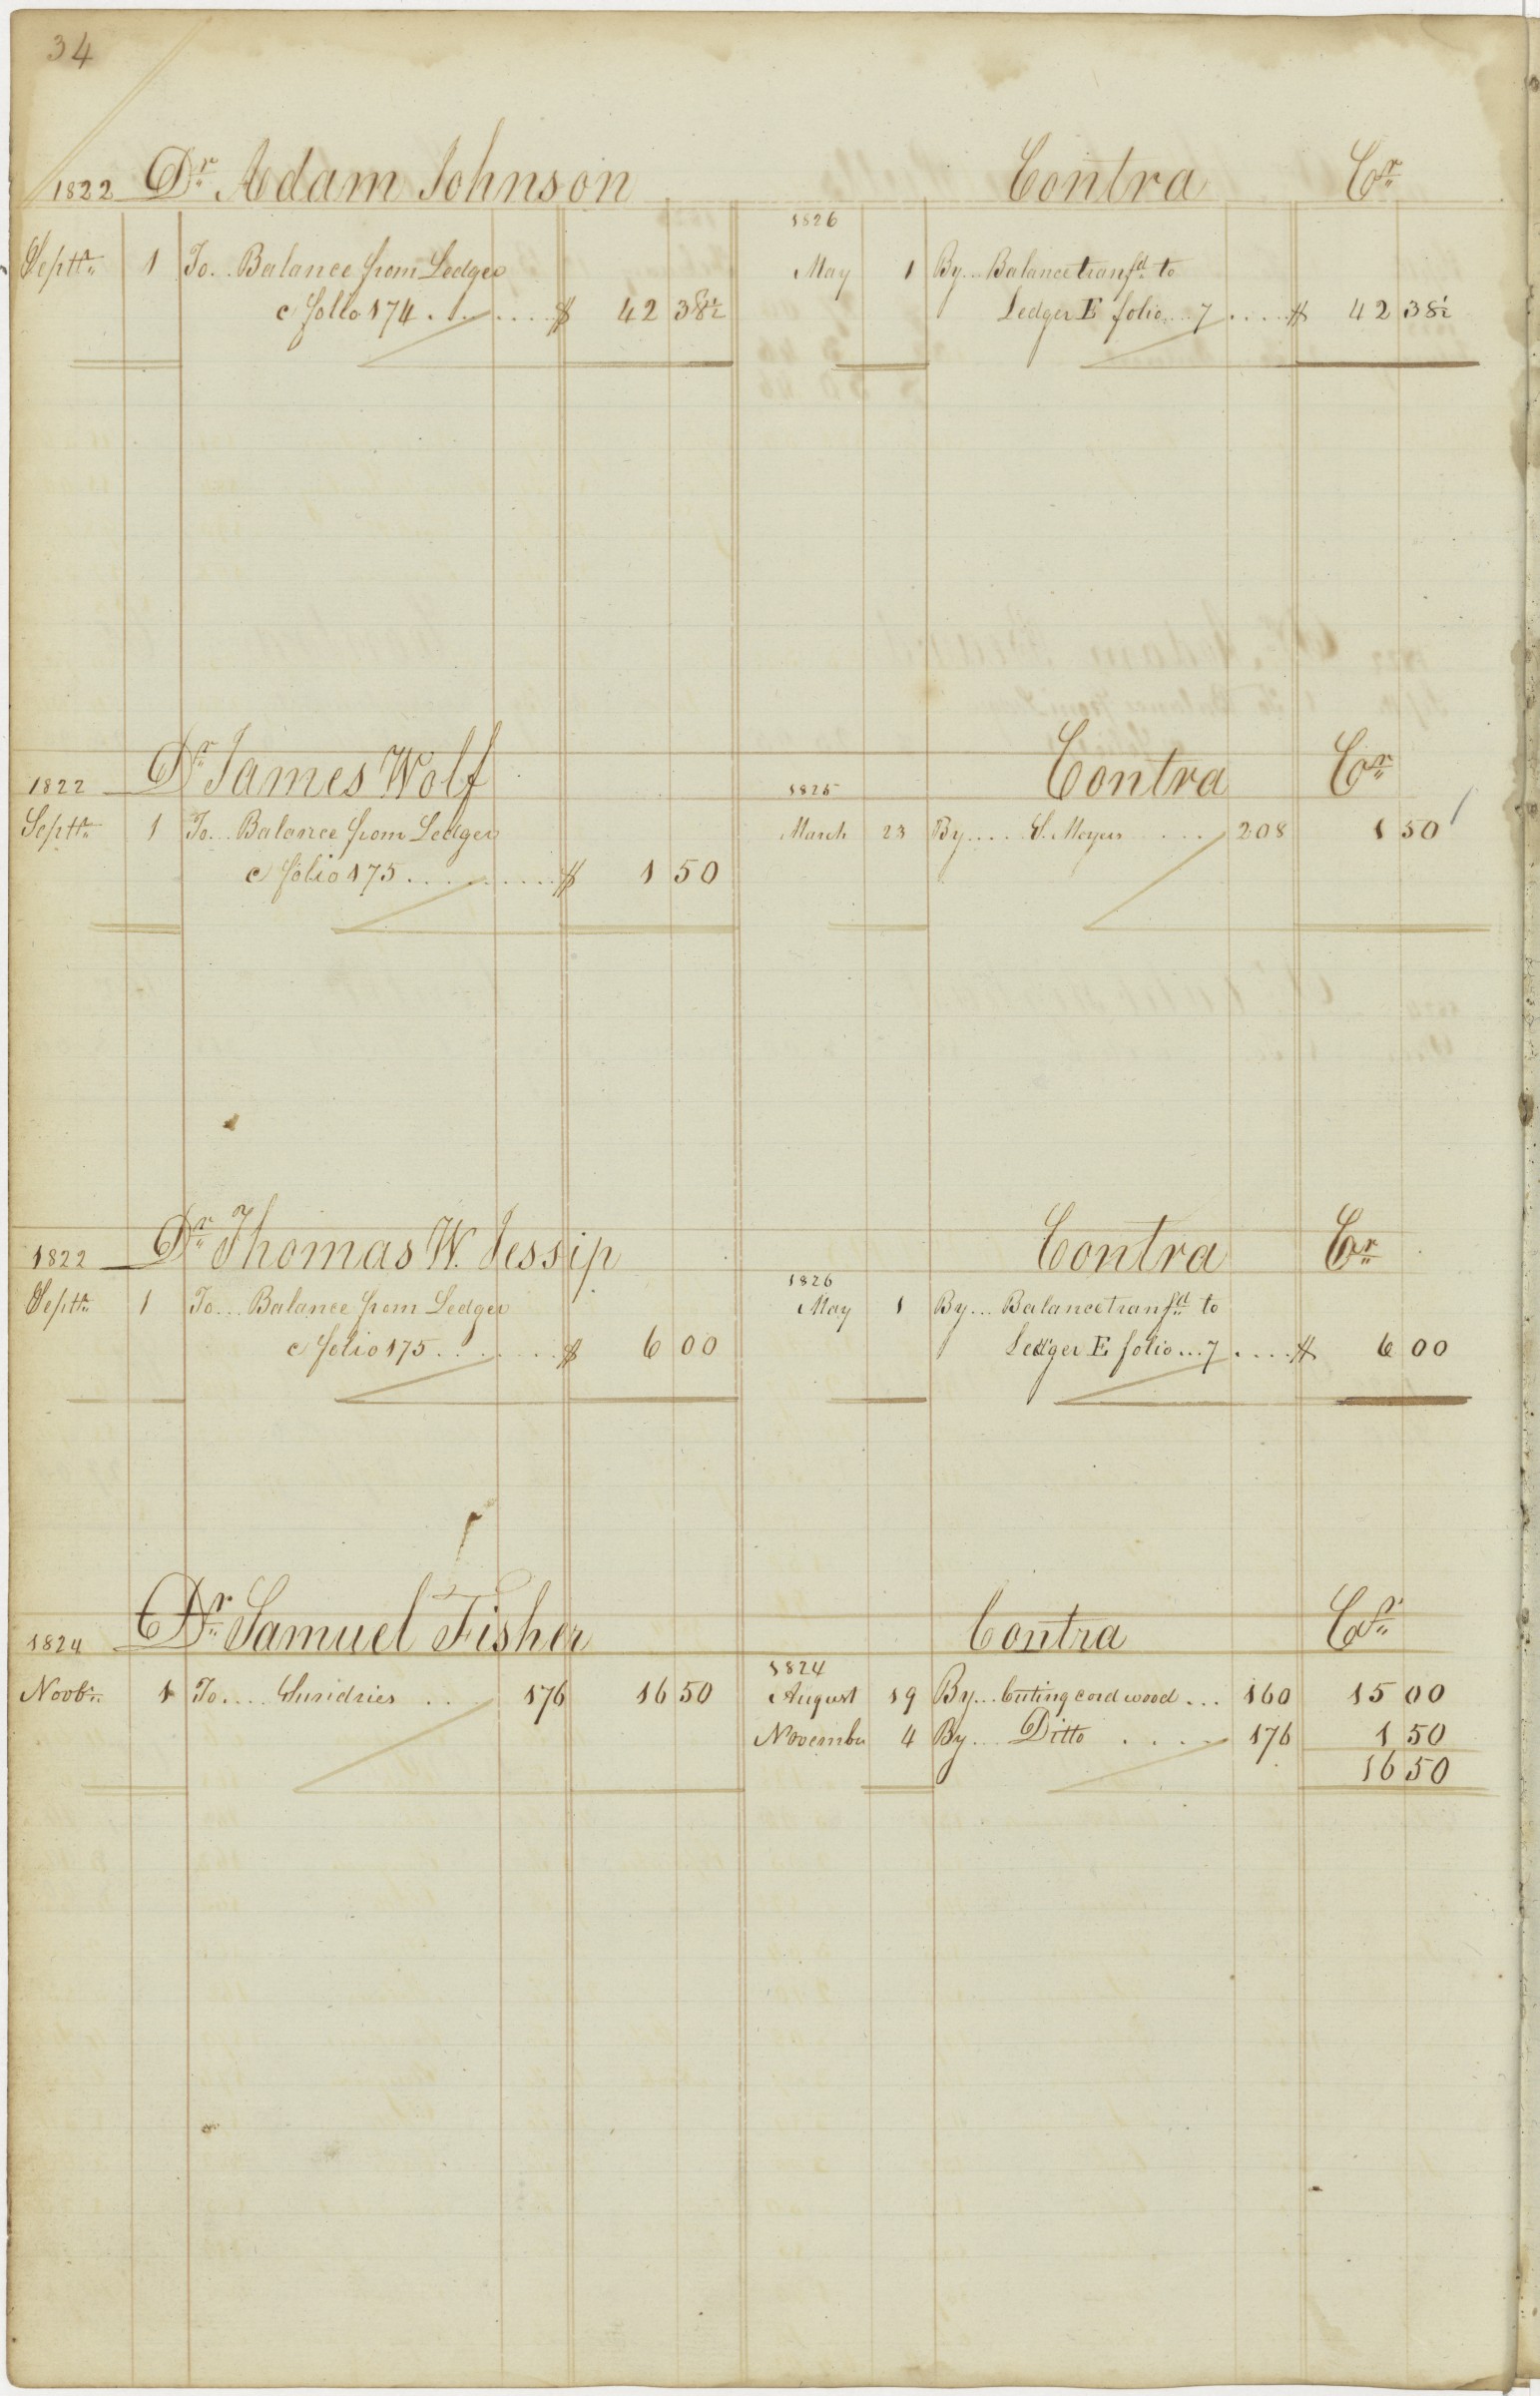 34
1822 Dr. Adam Johnson Contra Cr.
1826
Septr. 1 To.. Balance from Ledger May 1 By... Balance transfd. to
C follo 174 ........ $ 42 38½ Ledger E folio... 7 .... $ 42 38½
1822 Dr. James Wolf 1825 Contra Cr.
Septr. 1 To... Balance from Ledger March 23 By.... S. Moyers .... 208 1 50
C folio 175 .......... $ 1 50
1822 Dr. Thomas W. Jessip Contra Cr.
1826
Septr. 1 To... Balance from Ledger May 1 By... Balance transfd. to
C folio 175 ........ $ 6 00 Ledger E folio... 7 .... $ 6 00
1824 Dr. Samuel Fisher Contra Cr.
1824
Noobr. 1 To.... Sundries ... 176 16 50 August 19 By... Cuting cord wood ... 160 15 00
November 4 By... Ditto .... 176 1 50
16 50